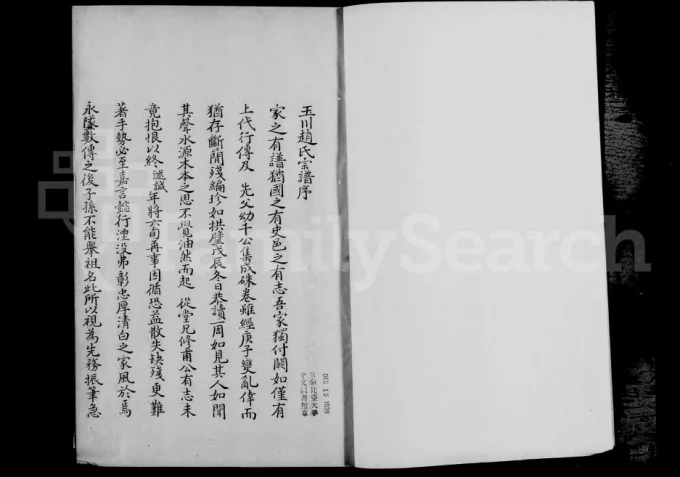 玉川趙氏宗譜序
家之有譜猶國之有史邑之有志吾家獨付闕如僅有
上代行傳及 先父幼千公集成硃卷雖經庚子變亂倖而
猶存斷簡殘編珍如拱璧戊辰冬日恭讀一周如見其人如聞
其聲水源木本之思不覺油然而起 從堂兄修甫公有志未
竟抱恨以終 述誠年將六旬再事因循恐益散失缺殘更難
著手勢必至嘉言懿行湮没弗彰忠厚清白之家風於焉
永墜數傳之後子孫不能舉祖名此所以視為先務振筆急
DEC 15 1938
比亞大學
FamilySearch